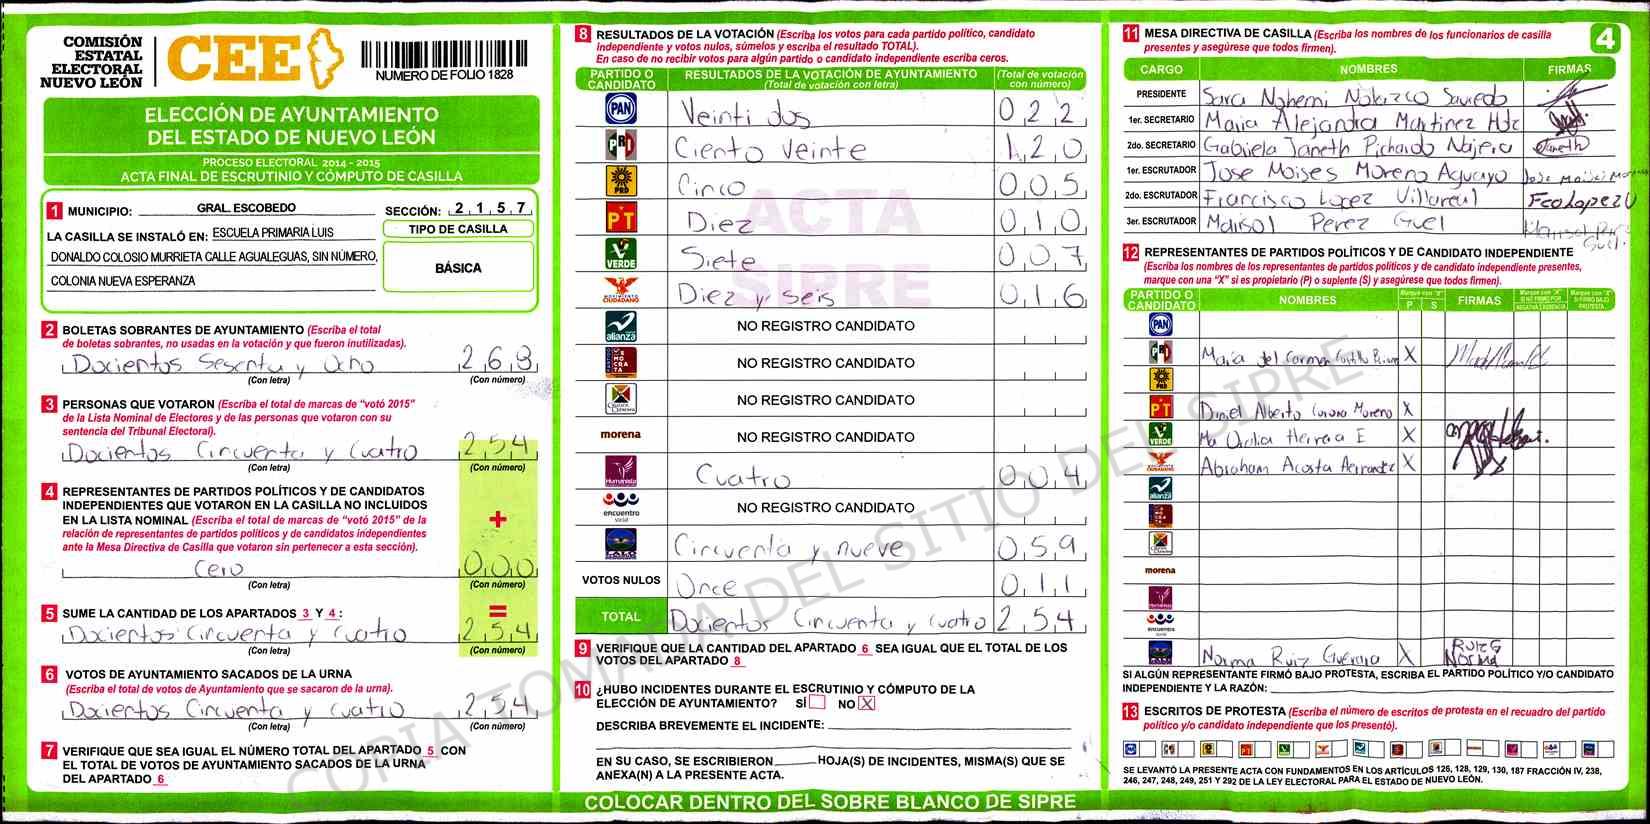 COMISIÓN
ESTATAL
ELECTORAL
NUEVO LEÓN
CEE
NUMERO DE FOLIO 1828
ELECCIÓN DE AYUNTAMIENTO
DEL ESTADO DE NUEVO LEÓN
PROCESO ELECTORAL 2014 - 2015
ACTA FINAL DE ESCRUTINIO Y CÓMPUTO DE CASILLA
1 MUNICIPIO: GRAL. ESCOBEDO SECCIÓN: 2157
LA CASILLA SE INSTALÓ EN: ESCUELA PRIMARIA LUIS
DONALDO COLOSIO MURRIETA CALLE AGUALEGUAS, SIN NÚMERO,
COLONIA NUEVA ESPERANZA
TIPO DE CASILLA
BÁSICA
2 BOLETAS SOBRANTES DE AYUNTAMIENTO (Escriba el total
de boletas sobrantes, no usadas en la votación y que fueron inutilizadas).
Docientos Sesenta y Ocho 268
(Con letra) (Con número)
3 PERSONAS QUE VOTARON (Escriba el total de marcas de "votó 2015"
de la Lista Nominal de Electores y de las personas que votaron con su
sentencia del Tribunal Electoral).
Docientos Cincuenta y Cuatro 254
(Con letra) (Con número)
4 REPRESENTANTES DE PARTIDOS POLÍTICOS Y DE CANDIDATOS
INDEPENDIENTES QUE VOTARON EN LA CASILLA NO INCLUIDOS
EN LA LISTA NOMINAL (Escriba el total de marcas de "votó 2015" de la
relación de representantes de partidos políticos y de candidatos independientes
ante la Mesa Directiva de Casilla que votaron sin pertenecer a esta sección).
+
Cero 000
(Con letra) (Con número)
5 SUME LA CANTIDAD DE LOS APARTADOS 3 Y 4: =
Docientos Cincuenta y Cuatro 254
(Con letra) (Con número)
6 VOTOS DE AYUNTAMIENTO SACADOS DE LA URNA
(Escriba el total de votos de Ayuntamiento que se sacaron de la urna).
Docientos Cincuenta y Cuatro 254
(Con letra) (Con número)
7 VERIFIQUE QUE SEA IGUAL EL NÚMERO TOTAL DEL APARTADO 5 CON
EL TOTAL DE VOTOS DE AYUNTAMIENTO SACADOS DE LA URNA
DEL APARTADO 6
8 RESULTADOS DE LA VOTACIÓN (Escriba los votos para cada partido político, candidato
independiente y votos nulos, súmelos y escriba el resultado TOTAL).
En caso de no recibir votos para algún partido o candidato independiente escriba ceros.
PARTIDO O CANDIDATO RESULTADOS DE LA VOTACIÓN DE AYUNTAMIENTO (Total de votación con letra) (Total de votación con número)
PAN Veinti dos 022
PRI Ciento Veinte 120
PRD Cinco 005
PT Diez 010
VERDE Siete 007
MOVIMIENTO CIUDADANO Diez y seis 016
alianza NO REGISTRO CANDIDATO
DEMOCRATA NO REGISTRO CANDIDATO
NO REGISTRO CANDIDATO
morena NO REGISTRO CANDIDATO
Humanista Cuatro 004
encuentro social NO REGISTRO CANDIDATO
Cincuenta y nueve 059
VOTOS NULOS Once 011
TOTAL Docientos Cincuenta y Cuatro 254
ACTA
SIPRE
9 VERIFIQUE QUE LA CANTIDAD DEL APARTADO 6 SEA IGUAL QUE EL TOTAL DE LOS
VOTOS DEL APARTADO 8
10 ¿HUBO INCIDENTES DURANTE EL ESCRUTINIO Y CÓMPUTO DE LA
ELECCIÓN DE AYUNTAMIENTO? SÍ NO X
DESCRIBA BREVEMENTE EL INCIDENTE:
EN SU CASO, SE ESCRIBIERON HOJA(S) DE INCIDENTES, MISMA(S) QUE SE
ANEXA(N) A LA PRESENTE ACTA.
COLOCAR DENTRO DEL SOBRE BLANCO DE SIPRE
COPIA TOMADA DEL SITIO DEL SIPRE
11 MESA DIRECTIVA DE CASILLA (Escriba los nombres de los funcionarios de casilla
presentes y asegúrese que todos firmen).
4
CARGO NOMBRES FIRMAS
PRESIDENTE Sara Nohemi Nolazco Saucedo
1er. SECRETARIO Maria Alejandra Martinez Hdz
2do. SECRETARIO Gabriela Janeth Pichardo Najera Janeth
1er. ESCRUTADOR Jose Moises Moreno Aguayo Jose Moises Moreno
2do. ESCRUTADOR Francisco Lopez Villareal Fco Lopez V
3er. ESCRUTADOR Marisol Perez Guel Marisol Perez Guel
12 REPRESENTANTES DE PARTIDOS POLÍTICOS Y DE CANDIDATO INDEPENDIENTE
(Escriba los nombres de los representantes de partidos políticos y de candidato independiente presentes,
marque con una "X" si es propietario (P) o suplente (S) y asegúrese que todos firmen).
PARTIDO O CANDIDATO NOMBRES Marque con "X" P S FIRMAS Marque con "X" SI NO FIRMÓ POR NEGATIVA AUSENCIA Marque con "X" SI FIRMÓ BAJO PROTESTA
PAN
PRI Maria del Carmen Castillo X
PRD
PT Daniel Alberto Corona Moreno X
VERDE Ma Herrera E X
MOVIMIENTO CIUDADANO Abraham Acosta Hernandez X
alianza
morena
Humanista
encuentro social
Norma Ruiz Guerra X Ruiz G Norma
SI ALGÚN REPRESENTANTE FIRMÓ BAJO PROTESTA, ESCRIBA EL PARTIDO POLÍTICO Y/O CANDIDATO
INDEPENDIENTE Y LA RAZÓN:
13 ESCRITOS DE PROTESTA (Escriba el número de escritos de protesta en el recuadro del partido
político y/o candidato independiente que los presentó).
SE LEVANTÓ LA PRESENTE ACTA CON FUNDAMENTOS EN LOS ARTÍCULOS 126, 128, 129, 130, 187 FRACCIÓN IV, 238,
246, 247, 248, 249, 251 Y 292 DE LA LEY ELECTORAL PARA EL ESTADO DE NUEVO LEÓN.